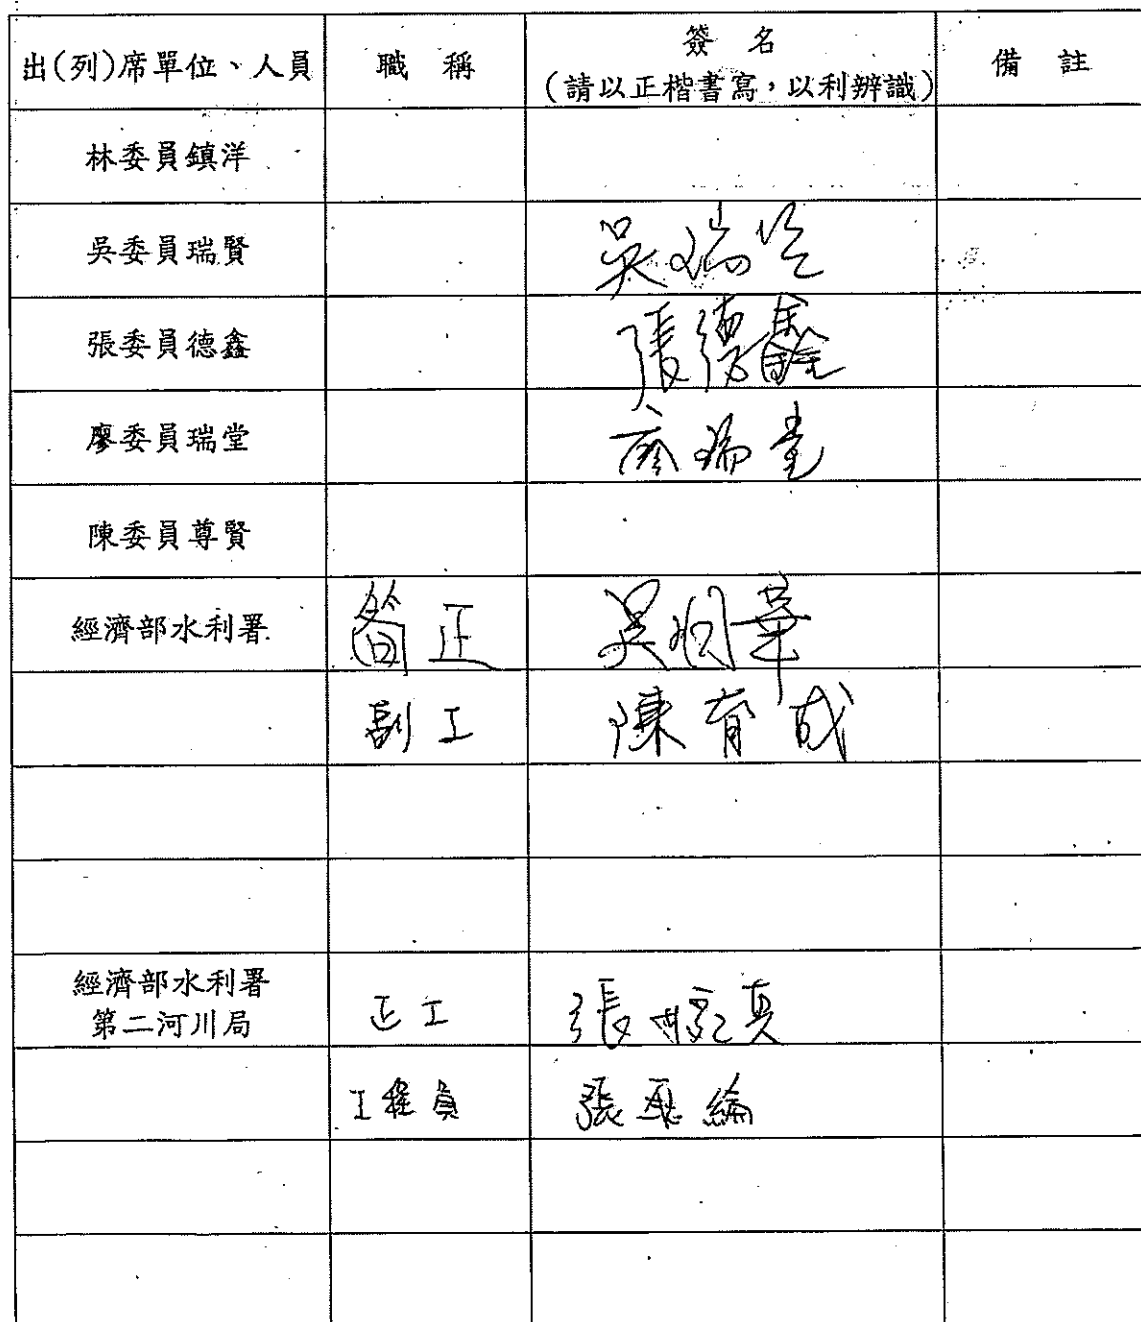 出(列)席單位、人員 職稱 簽名 備註
(請以正楷書寫，以利辨識)
林委員鎮洋
吳委員瑞賢 吳瑞賢
張委員德鑫 張德鑫
廖委員瑞堂 廖瑞堂
陳委員尊賢
經濟部水利署 簡正 吳
副工 陳育成
經濟部水利署
第二河川局 正工 張
工程員 張